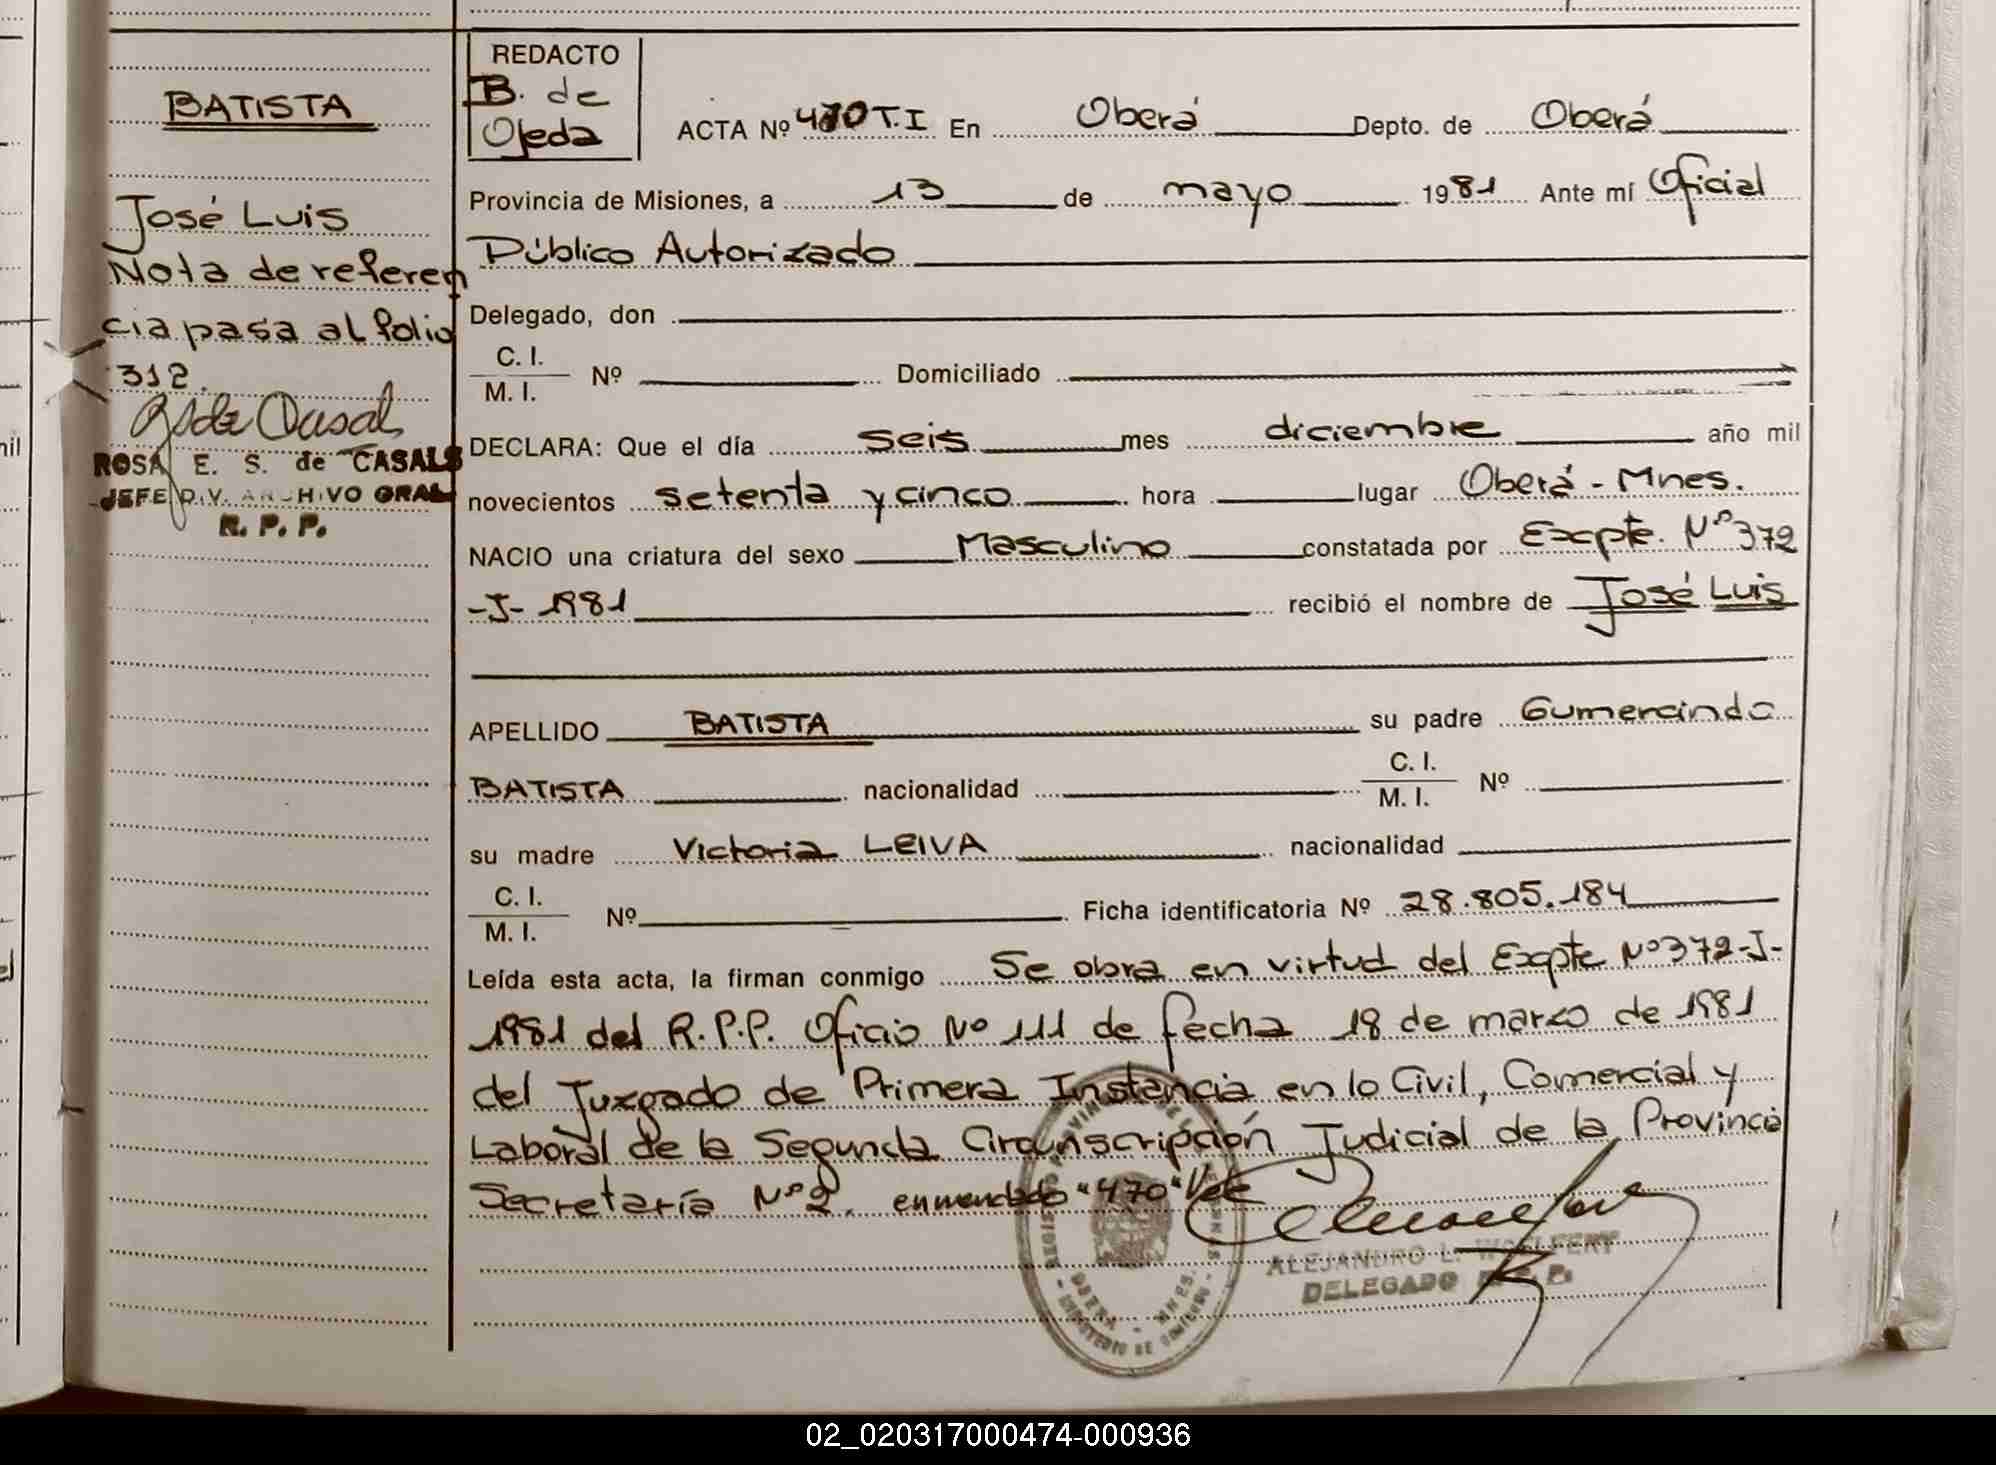 BATISTA
José Luis
Nota de referen
cia pasa al folio
312.
ROSA E. S. de CASALS
JEFE DIV. ARCHIVO GRAL
R. P. P.
REDACTO
B. de
Ojeda
ACTA Nº 470 T.I En Oberá Depto. de Oberá
Provincia de Misiones, a 13 de mayo 1981 Ante mí Oficial
Público Autorizado
Delegado, don
C. I.
M. I. Nº Domiciliado
DECLARA: Que el día seis mes diciembre año mil
novecientos setenta y cinco hora lugar Oberá - Mnes.
NACIO una criatura del sexo Masculino constatada por Expte. Nº 372
-J- 1981 recibió el nombre de José Luis
APELLIDO BATISTA su padre Gumercindo
BATISTA nacionalidad C. I.
M. I. Nº
su madre Victoria LEIVA nacionalidad
C. I.
M. I. Nº Ficha identificatoria Nº 28.805.184
Leída esta acta, la firman conmigo Se obra en virtud del Expte Nº 372-J-
1981 del R.P.P. Oficio Nº 111 de fecha 18 de marzo de 1981
del Juzgado de Primera Instancia en lo Civil, Comercial y
Laboral de la Segunda Circunscripción Judicial de la Provincia
Secretaría Nº 2. enmendado "470" Vale
ALEJANDRO L. WOELFERT
DELEGADO R. P. P.
02_020317000474-000936